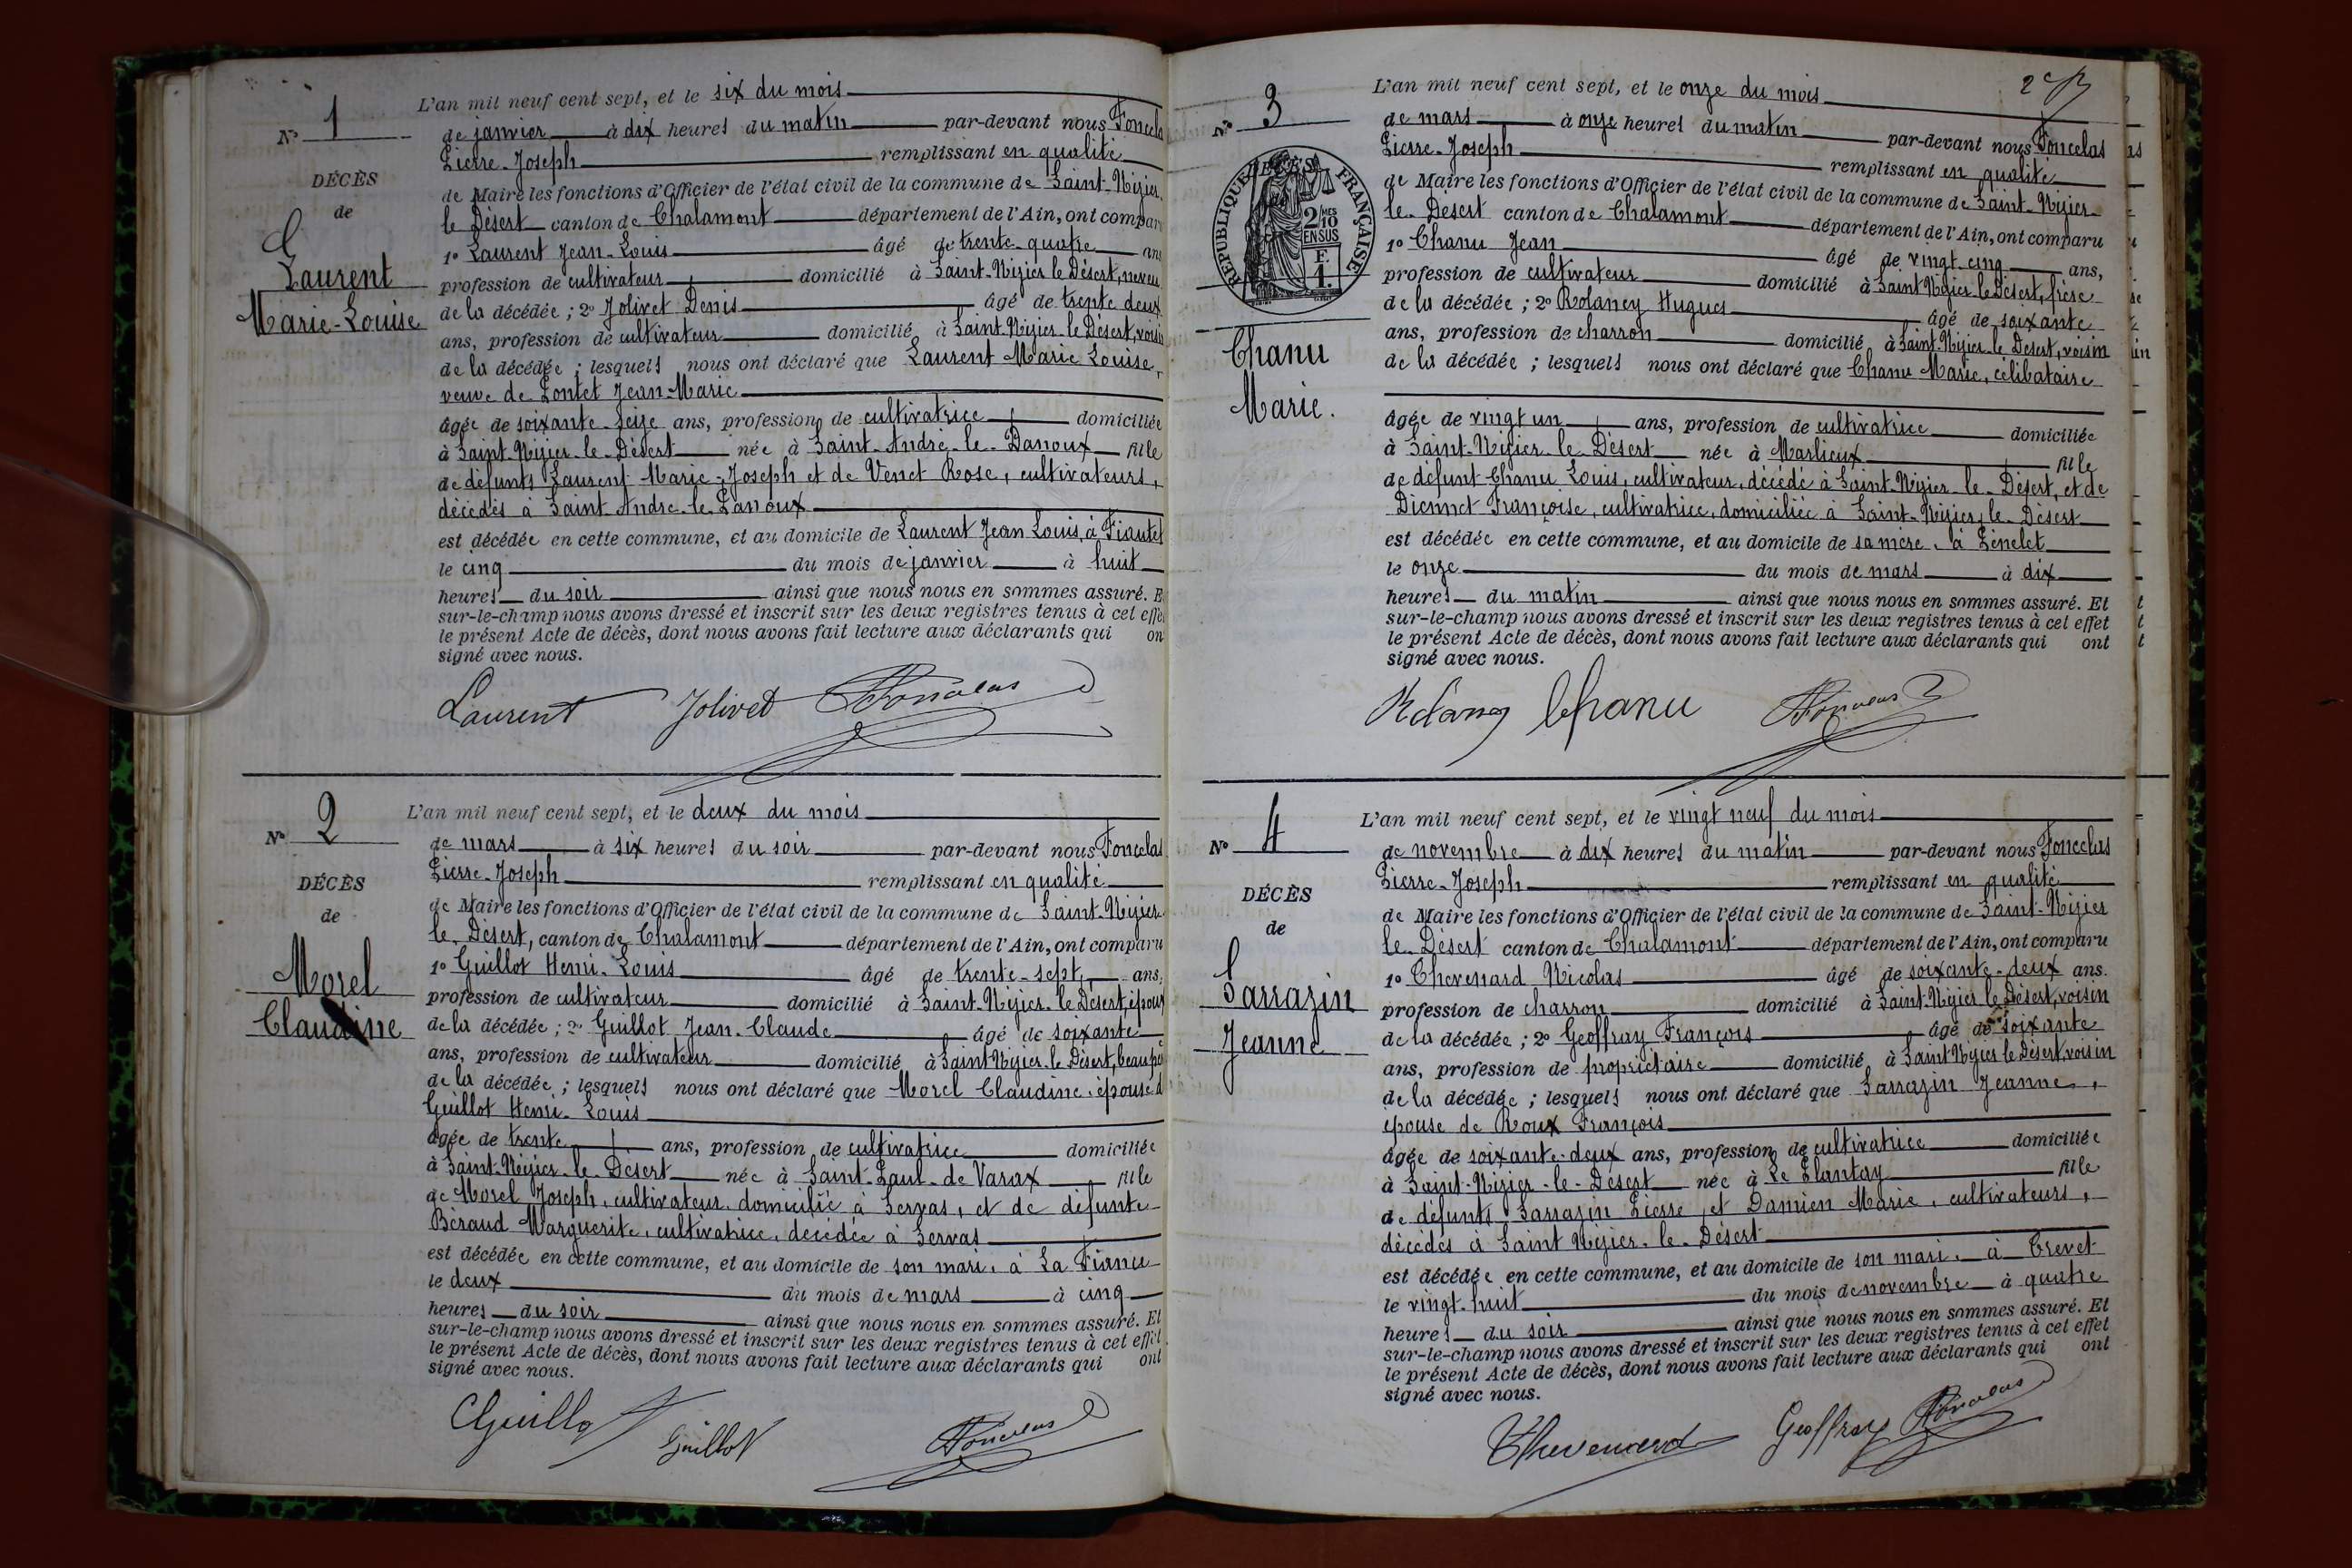 N° 1
DÉCÈS
de
Laurent
Marie-Louise
L'an mil neuf cent sept, et le six du mois
de janvier à dix heures du matin par-devant nous Foncelas
Pierre-Joseph remplissant en qualité
de Maire les fonctions d'Officier de l'état civil de la commune de Saint-Nizier
le Désert canton de Chalamont département de l'Ain, ont compar
1° Laurent Jean-Louis âgé de trente-quatre ans
profession de cultivateur domicilié à Saint-Nizier le Désert, neveu
de la décédée ; 2° Jolivet Denis âgé de trente deux
ans, profession de cultivateur domicilié à Saint-Nizier-le-Désert, voisin
de la décédée ; lesquels nous ont déclaré que Laurent Marie Louise,
veuve de Pontet Jean-Marie
âgée de soixante-seize ans, profession de cultivatrice domiciliée
à Saint-Nizier-le-Désert née à Saint-André-le-Panoux fille
de défunts Laurent Marie-Joseph et de Venet Rose, cultivateurs,
décédés à Saint-André-le-Panoux
est décédée en cette commune, et au domicile de Laurent Jean Louis, à
le cinq du mois de janvier à huit
heures du soir ainsi que nous nous en sommes assuré. E
sur-le-champ nous avons dressé et inscrit sur les deux registres tenus à cet effe
le présent Acte de décès, dont nous avons fait lecture aux déclarants qui on
signé avec nous.
Laurent Jolivet Foncelas
N° 2
DÉCÈS
de
Morel
Claudine
L'an mil neuf cent sept, et le deux du mois
de mars à six heures du soir par-devant nous Foncelas
Pierre-Joseph remplissant en qualité
de Maire les fonctions d'Officier de l'état civil de la commune de Saint-Nizier-
le-Désert, canton de Chalamont département de l'Ain, ont comparu
1° Guillot Henri-Louis âgé de trente-sept ans,
profession de cultivateur domicilié à Saint-Nizier-le-Désert, époux
de la décédée ; 2° Guillot Jean-Claude âgé de soixante
ans, profession de cultivateur domicilié à Saint-Nizier-le-Désert, beau-père
de la décédée ; lesquels nous ont déclaré que Morel Claudine, épouse d
Guillot Henri-Louis
âgée de trente ans, profession de cultivatrice domiciliée
à Saint-Nizier-le-Désert née à Saint-Paul-de-Varax fille
de Morel Joseph, cultivateur, domicilié à Servas, et de défunte
Béraud Marguerite, cultivatrice, décédée à Servas
est décédée en cette commune, et au domicile de son mari, à La
le deux du mois de mars à cinq
heures du soir ainsi que nous nous en sommes assuré. Et
sur-le-champ nous avons dressé et inscrit sur les deux registres tenus à cet effet
le présent Acte de décès, dont nous avons fait lecture aux déclarants qui ont
signé avec nous.
Guillot Guillot Foncelas
N° 3
RÉPUBLIQUE FRANÇAISE
DÉCÈS
2/10MES
EN SUS
F.
1.
Chanu
Marie.
L'an mil neuf cent sept, et le onze du mois
de mars à onze heures du matin par-devant nous Foncelas
Pierre-Joseph remplissant en qualité
de Maire les fonctions d'Officier de l'état civil de la commune de Saint-Nizier-
le-Désert canton de Chalamont département de l'Ain, ont comparu
1° Chanu Jean âgé de vingt-cinq ans,
profession de cultivateur domicilié à Saint Nizier le Désert, frère
de la décédée ; 2° Rolancy Hugues âgé de soixante
ans, profession de charron domicilié à Saint-Nizier-le-Désert, voisin
de la décédée ; lesquels nous ont déclaré que Chanu Marie, célibataire
âgée de vingt un ans, profession de cultivatrice domiciliée
à Saint-Nizier-le-Désert née à Marlieux fille
de défunt Chanu Louis, cultivateur, décédé à Saint-Nizier-le-Désert, et de
Françoise, cultivatrice, domiciliée à Saint-Nizier-le-Désert
est décédée en cette commune, et au domicile de sa mère, à
le onze du mois de mars à dix
heures du matin ainsi que nous nous en sommes assuré. Et
sur-le-champ nous avons dressé et inscrit sur les deux registres tenus à cet effet
le présent Acte de décès, dont nous avons fait lecture aux déclarants qui ont
signé avec nous.
Rolancy Chanu Foncelas
N° 4
DÉCÈS
de
Sarrazin
Jeanne
L'an mil neuf cent sept, et le vingt neuf du mois
de novembre à dix heures du matin par-devant nous Foncelas
Pierre-Joseph remplissant en qualité
de Maire les fonctions d'Officier de l'état civil de la commune de Saint-Nizier
le-Désert canton de Chalamont département de l'Ain, ont comparu
1° Thevenard Nicolas âgé de soixante-deux ans.
profession de charron domicilié à Saint-Nizier le Désert, voisin
de la décédée ; 2° Geoffray François âgé de soixante
ans, profession de propriétaire domicilié à Saint Nizier le Désert, voisin
de la décédée ; lesquels nous ont déclaré que Sarrazin Jeanne,
épouse de Roux François
âgée de soixante-deux ans, profession de cultivatrice domiciliée
à Saint-Nizier-le-Désert née à Le Plantay fille
de défunts Sarrazin Pierre et Damien Marie, cultivateurs,
décédés à Saint Nizier-le-Désert
est décédée en cette commune, et au domicile de son mari, à Crevet
le vingt-huit du mois de novembre à quatre
heures du soir ainsi que nous nous en sommes assuré. Et
sur-le-champ nous avons dressé et inscrit sur les deux registres tenus à cet effet
le présent Acte de décès, dont nous avons fait lecture aux déclarants qui ont
signé avec nous.
Thevenard Geoffray Foncelas